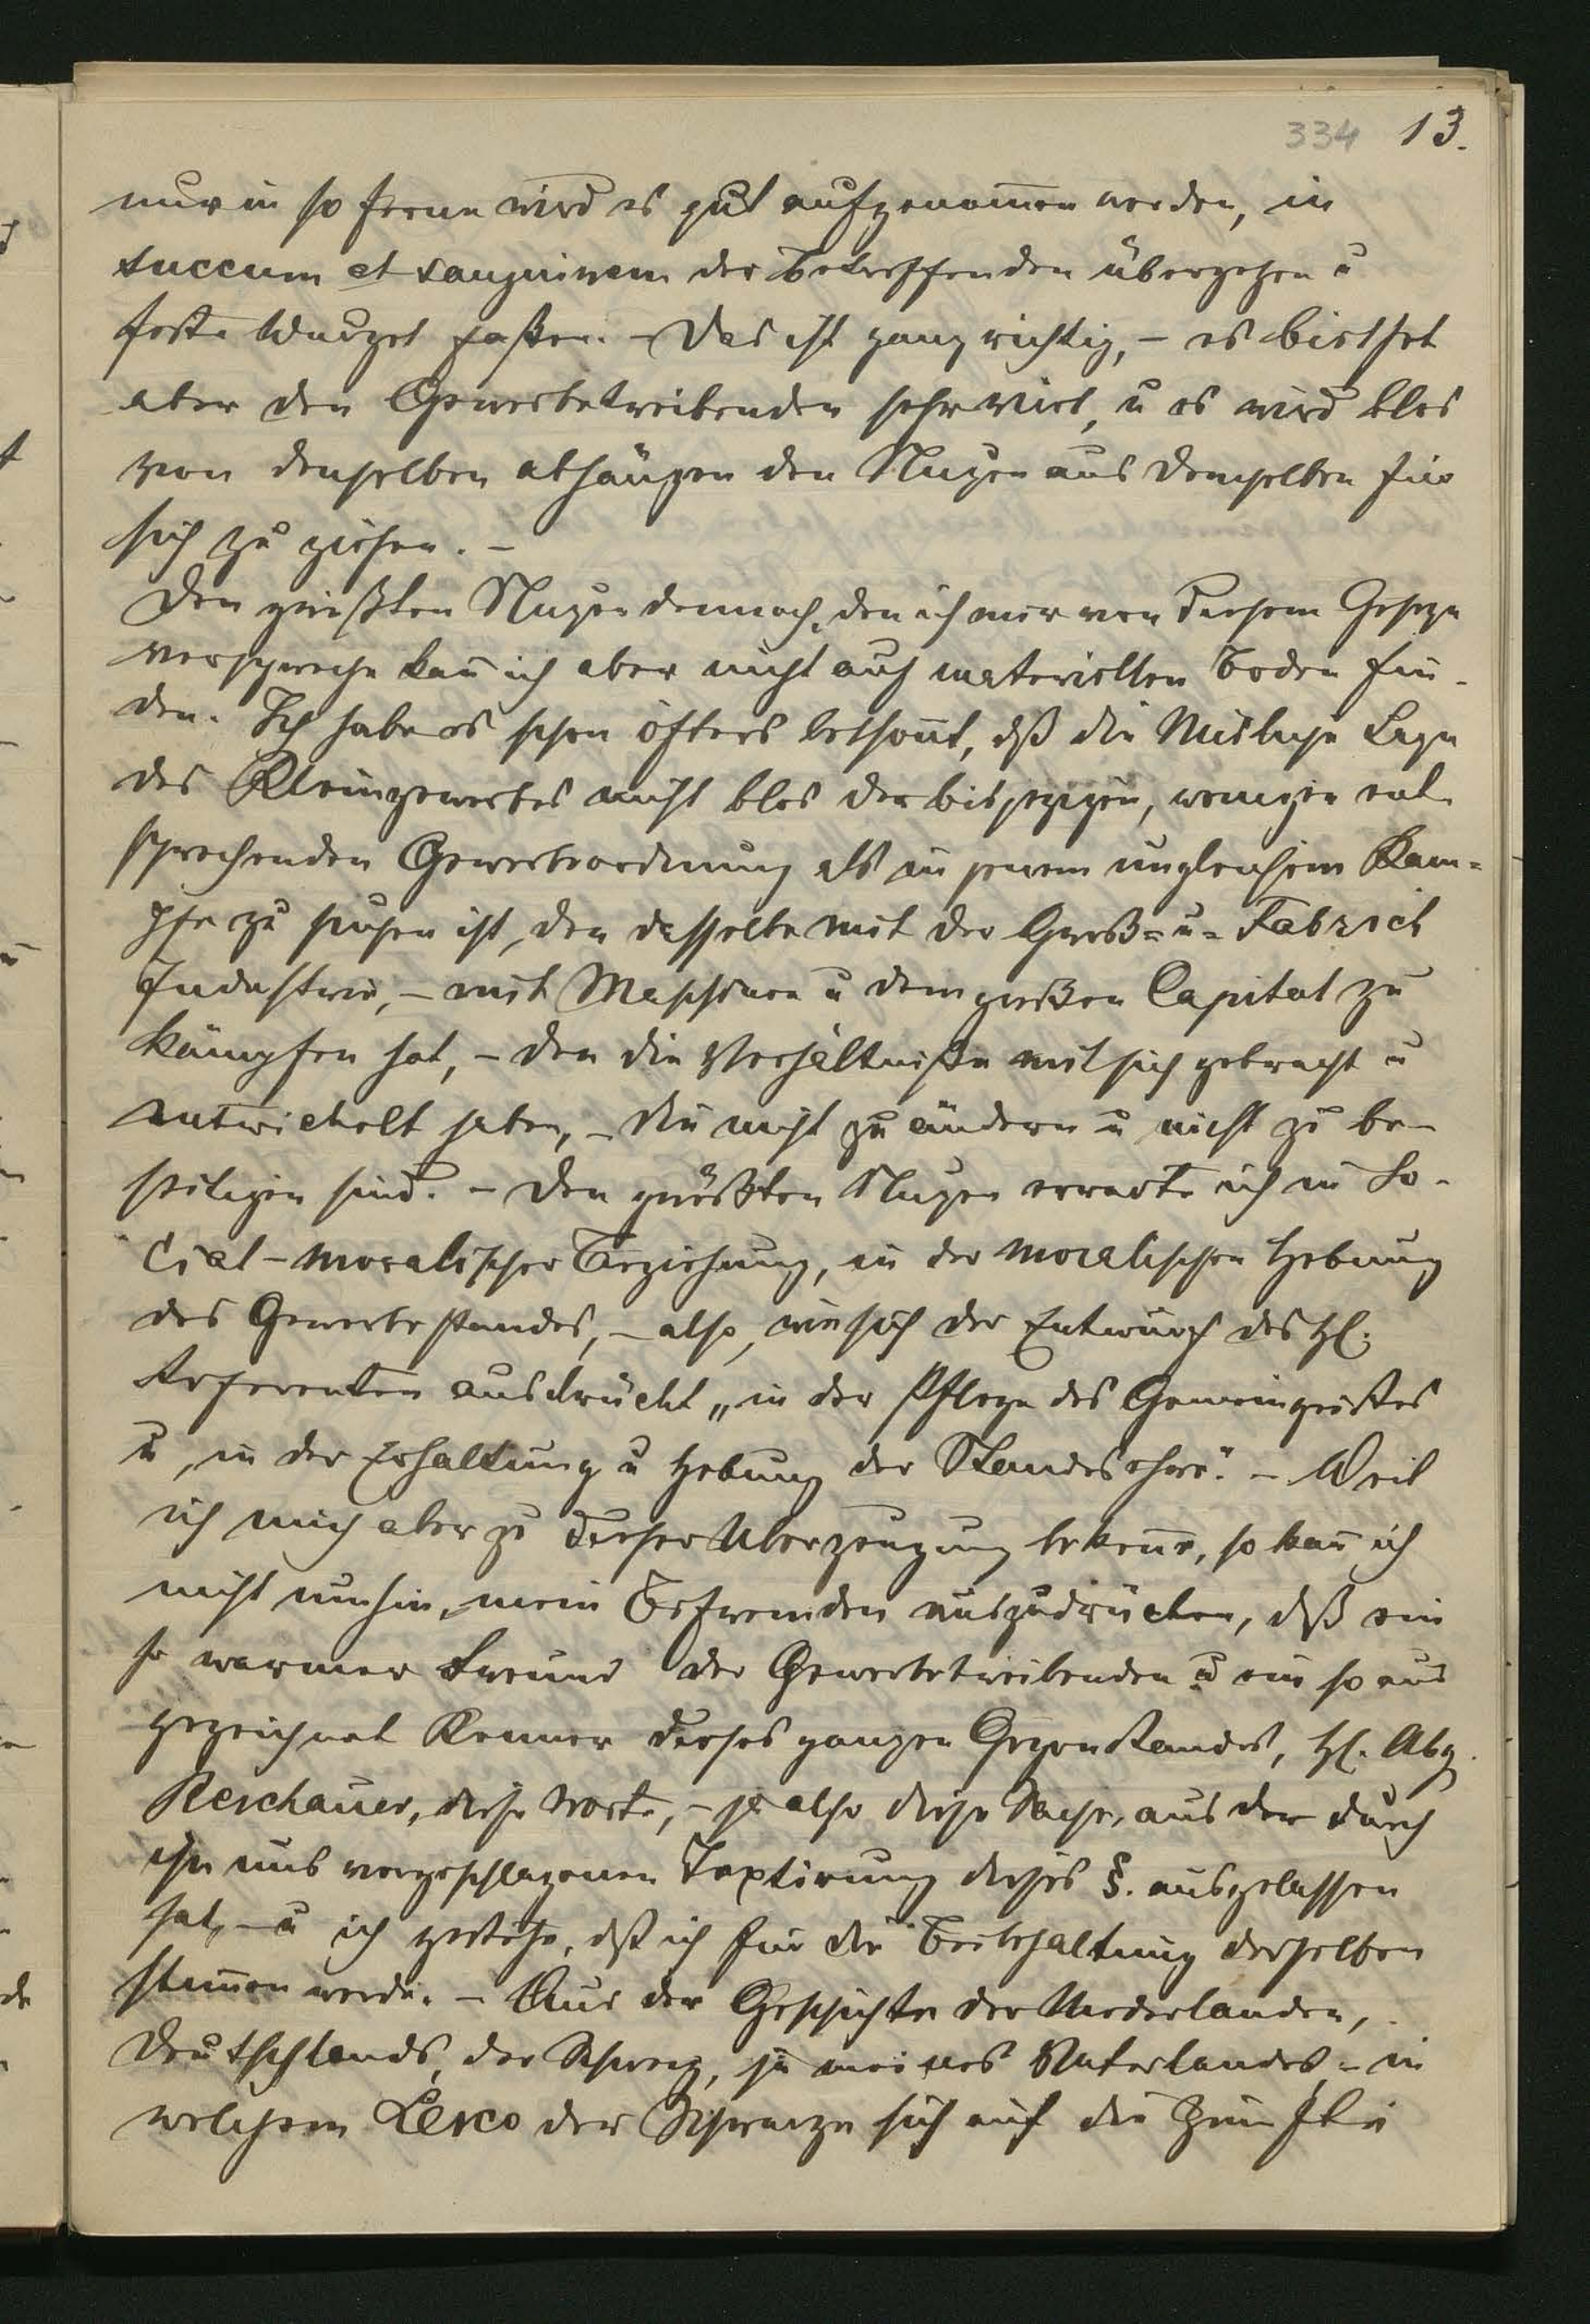 334 13.
nur in so ferne wird es gut aufgenom̄en werden, in
succum et sanguinem der Betreffenden übergehen u
feste Wurzel faßen. – Das ist ganz richtig, – es biethet
aber den Gewerbetreibenden sehr viel, u es wird blos
von denselben abhängen den Nutzen aus demselben für
sich zu ziehen. –
Den größten Nutzen dennoch, den ich mir von diesem Gesetze
verspreche kan̄ ich aber nicht auf materiellen Boden fin-
den. Ich habe es schon öfters bethont, dß die Mislige Lage
des Kleingewerbes nicht blos der bisjetzigen, wenigen ent-
sprechenden Gewerbeordnung als in jenem ungleichem Kam=
pfe zu suchen ist, den dasselbe mit der Groß= u= Fabrick
Industrie, – mit Maschinen u dem großen Capital zu
kämpfen hat, – den die Verhältniße mit sich gebracht u
entwickelt haben, – die nicht zu ändern u nicht zu be-
seitigen sind. – Den größten Nutzen erwarte ich in So-
cial-moralischer Beziehung, in der moralischen Hebung
des Gewerbestandes, – also, wie sich der Entwurf des H.
Referenten ausdrückt „in der Pflege des Gemeingeistes
u, in der Erhaltung u Hebung der Standesehre“. – Weil
ich mich aber zu dieser Uberzeugung beken̄e, so kan̄ ich
nicht umhin, mein Befremden auszudrücken, dß ein
so warmer Freund der Gewerbetreibenden u ein so aus
gezeichnet Kenner dieses ganzen Gegenstandes, H. Abg.
Reschauer, diese Worte, – ja also diese Sache, aus der durch
ihn uns vorgeschlagenen Textirung dieses §. ausgelassen
hat, – u ich gestehe, dß ich für die Beibehaltung derselben
stim̄en werde. – Aus der Geschichte der Niederlanden,
Deutschlands, der Schweiz, ja meines Vaterlandes, – in
welchem Lesco der Schwarze sich auf die Zünfte